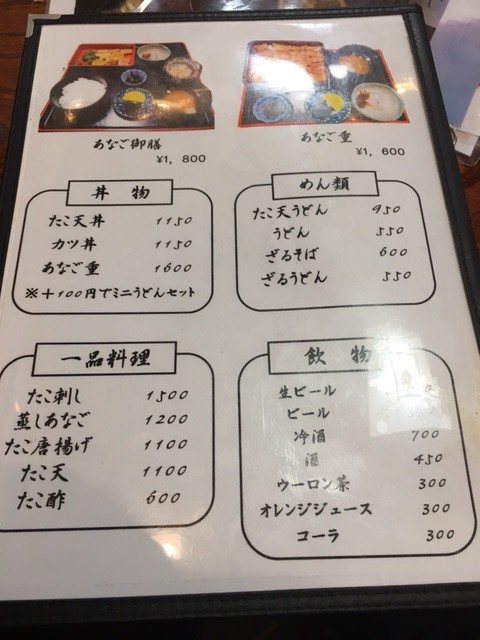 あなご御膳
¥1, 800
あなご重
¥1, 600
丼 物
たこ天丼 1150
カツ丼 1150
あなご重 1600
※+100円でミニうどんセット
めん類
たこ天うどん 950
うどん 550
ざるそば 600
ざるうどん 550
一品料理
たこ刺し 1500
蒸しあなご 1200
たこ唐揚げ 1100
たこ天 1100
たこ酢 600
飲 物
生ビール
ビール
冷酒 700
酒 450
ウーロン茶 300
オレンジジュース 300
コーラ 300